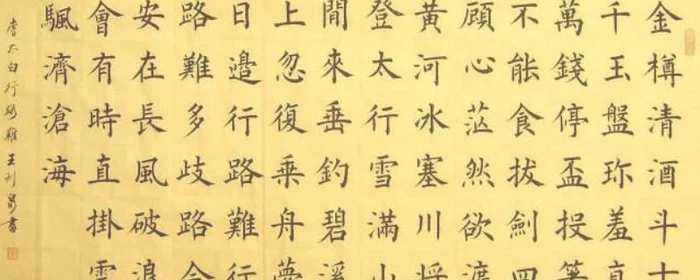 金樽清酒斗十
千玉盤珎羞直
萬錢停盃投箸
不能食拔劍四
顧心茫然欲渡
黃河冰塞川將
登太行雪滿山
閒來垂釣碧溪
上忽復乘舟夢
日邊行路難行
路難多歧路今
安在長風破浪
會有時直掛雲
颿濟滄海
李太白行路難 王書